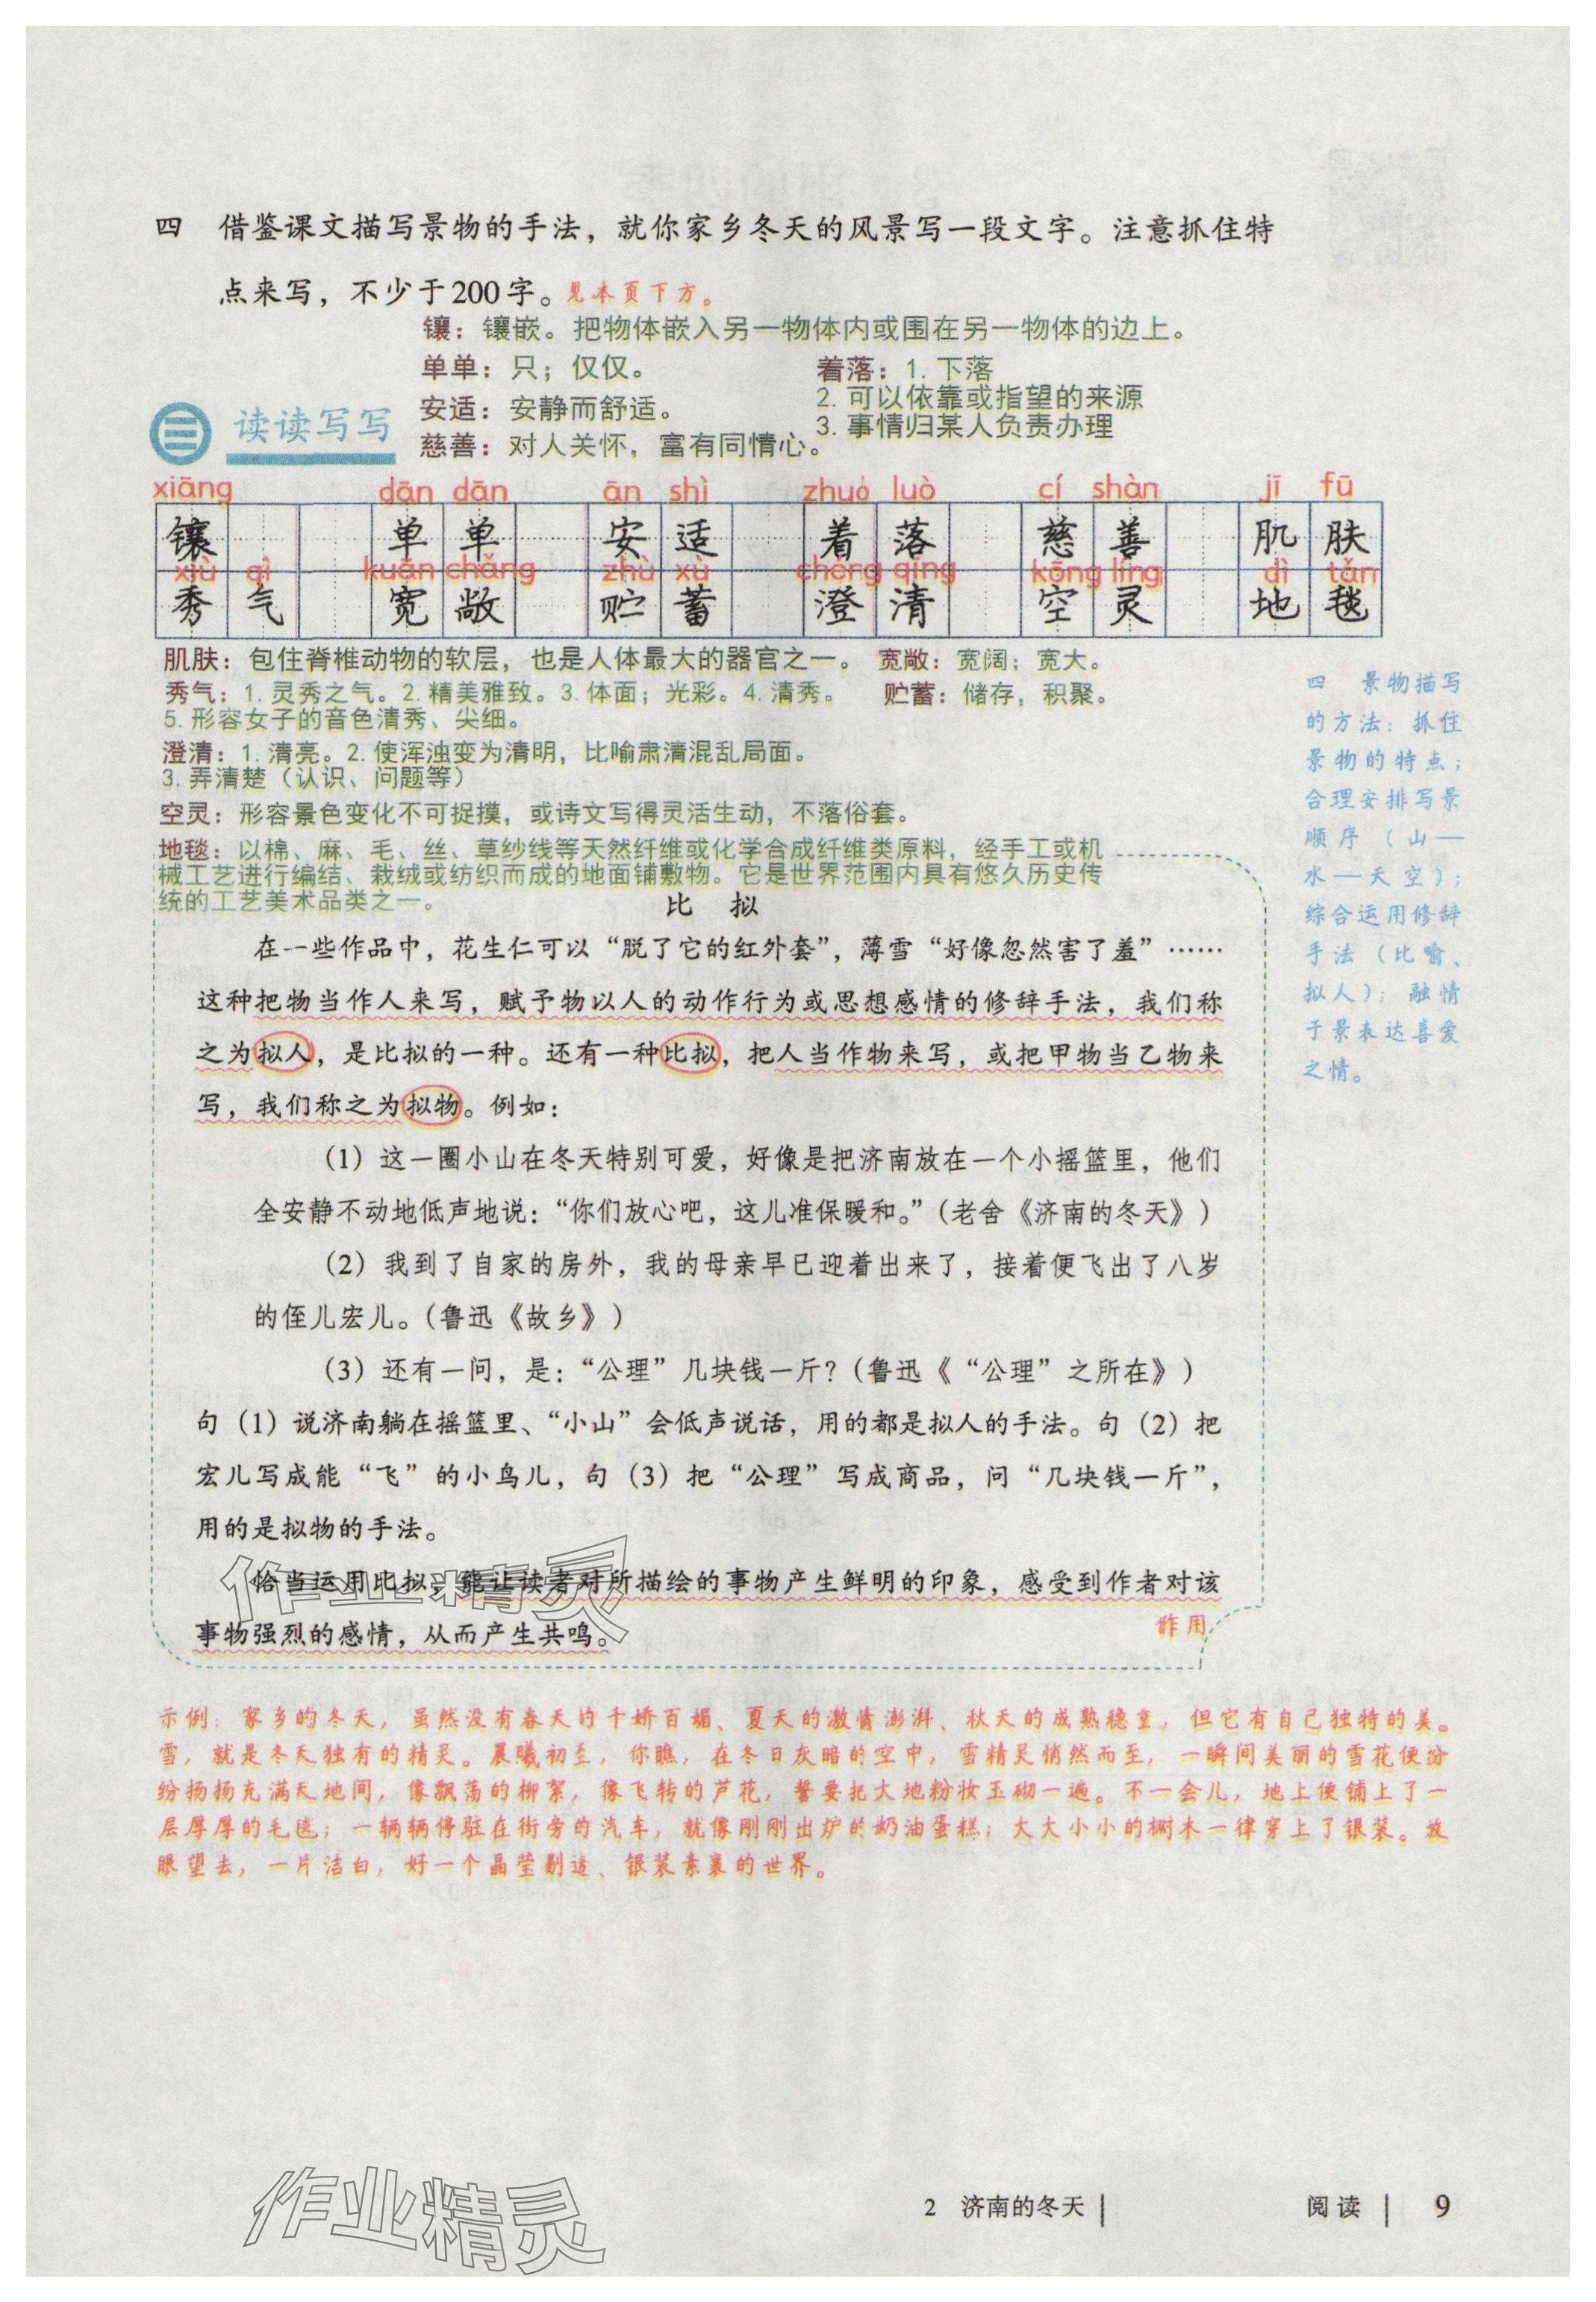 四 借鉴课文描写景物的手法，就你家乡冬天的风景写一段文字。注意抓住特
点来写，不少于200字。见本页下方。
镶：镶嵌。把物体嵌入另一物体内或围在另一物体的边上。
单单：只；仅仅。
着落：1. 下落
安适：安静而舒适。
2. 可以依靠或指望的来源
慈善：对人关怀，富有同情心。
3. 事情归某人负责办理
读读写写
xiāng dān dān ān shì zhuó luò cí shàn jī fū
镶 单单 安适 着落 慈善 肌肤
xiù qì kuān chǎng zhù xù chéng qīng kōng líng dì tǎn
秀气 宽敞 贮蓄 澄清 空灵 地毯
肌肤：包住脊椎动物的软层，也是人体最大的器官之一。 宽敞：宽阔；宽大。
秀气：1. 灵秀之气。2. 精美雅致。3. 体面；光彩。4. 清秀。 贮蓄：储存，积聚。
5. 形容女子的音色清秀、尖细。
澄清：1. 清亮。2. 使浑浊变为清明，比喻肃清混乱局面。
3. 弄清楚（认识、问题等）
空灵：形容景色变化不可捉摸，或诗文写得灵活生动，不落俗套。
地毯：以棉、麻、毛、丝、草纱线等天然纤维或化学合成纤维类原料，经手工或机
械工艺进行编结、栽绒或纺织而成的地面铺敷物。它是世界范围内具有悠久历史传
统的工艺美术品类之一。
比 拟
在一些作品中，花生仁可以“脱了它的红外套”，薄雪“好像忽然害了羞”……
这种把物当作人来写，赋予物以人的动作行为或思想感情的修辞手法，我们称
之为拟人，是比拟的一种。还有一种比拟，把人当作物来写，或把甲物当乙物来
写，我们称之为拟物。例如：
（1）这一圈小山在冬天特别可爱，好像是把济南放在一个小摇篮里，他们
全安静不动地低声地说：“你们放心吧，这儿准保暖和。”（老舍《济南的冬天》）
（2）我到了自家的房外，我的母亲早已迎着出来了，接着便飞出了八岁
的侄儿宏儿。（鲁迅《故乡》）
（3）还有一问，是：“公理”几块钱一斤？（鲁迅《“公理”之所在》）
句（1）说济南躺在摇篮里、“小山”会低声说话，用的都是拟人的手法。句（2）把
宏儿写成能“飞”的小鸟儿，句（3）把“公理”写成商品，问“几块钱一斤”，
用的是拟物的手法。
恰当运用比拟，能让读者对所描绘的事物产生鲜明的印象，感受到作者对该
事物强烈的感情，从而产生共鸣。
作用
四 景物描写
的方法：抓住
景物的特点；
合理安排写景
顺序（山—
水—天空）；
综合运用修辞
手法（比喻、
拟人）；融情
于景表达喜爱
之情。
示例：家乡的冬天，虽然没有春天的千娇百媚、夏天的激情澎湃、秋天的成熟稳重，但它有自己独特的美。
雪，就是冬天独有的精灵。晨曦初至，你瞧，在冬日灰暗的空中，雪精灵悄然而至，一瞬间美丽的雪花便纷
纷扬扬充满天地间，像飘荡的柳絮，像飞转的芦花，誓要把大地粉妆玉砌一遍。不一会儿，地上便铺上了一
层厚厚的毛毯；一辆辆停驻在街旁的汽车，就像刚刚出炉的奶油蛋糕；大大小小的树木一律穿上了银装。放
眼望去，一片洁白，好一个晶莹剔透、银装素裹的世界。
作业精灵
作业精灵
2 济南的冬天
阅读
9